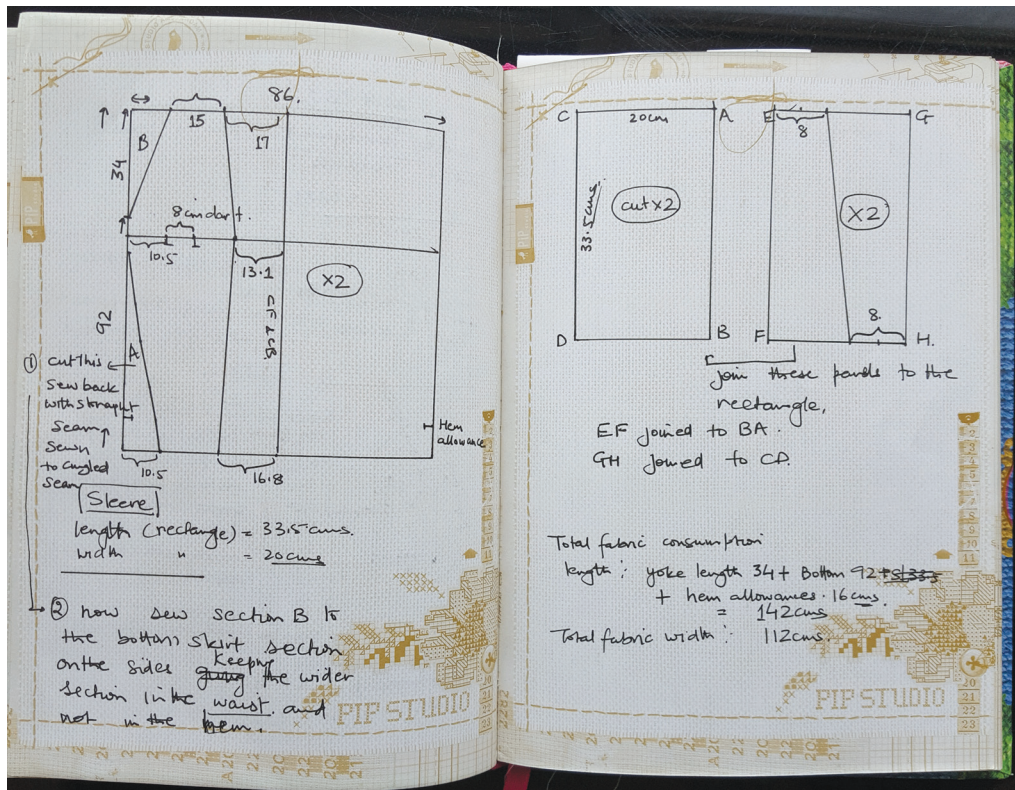 86.
15
17
B
34
8 cm dart.
10.5
13.1
X2
92
① cut this
A
Sew back
with straight
Seam
Sewn
to angled
Seam
Hem
allowance
10.5
16.8
Sleeve
length (rectange) = 33.5 cms.
width " = 20 cms
② now sew section B to
the bottom skirt section
on the sides keeping the wider
section in the waist. and
not in the hem.
PIP STUDIO
C
20cm
A
E
8
G
33.5 cms.
cut x2
X2
D
B
F
8.
H.
join these panels to the
rectangle.
EF joined to BA.
GH joined to CD.
Total fabric consumption
length : yoke length 34 + Bottom 92
+ hem allowances . 16 cms.
= 142 cms
Total fabric width : 112 cms.
PIP STUDIO